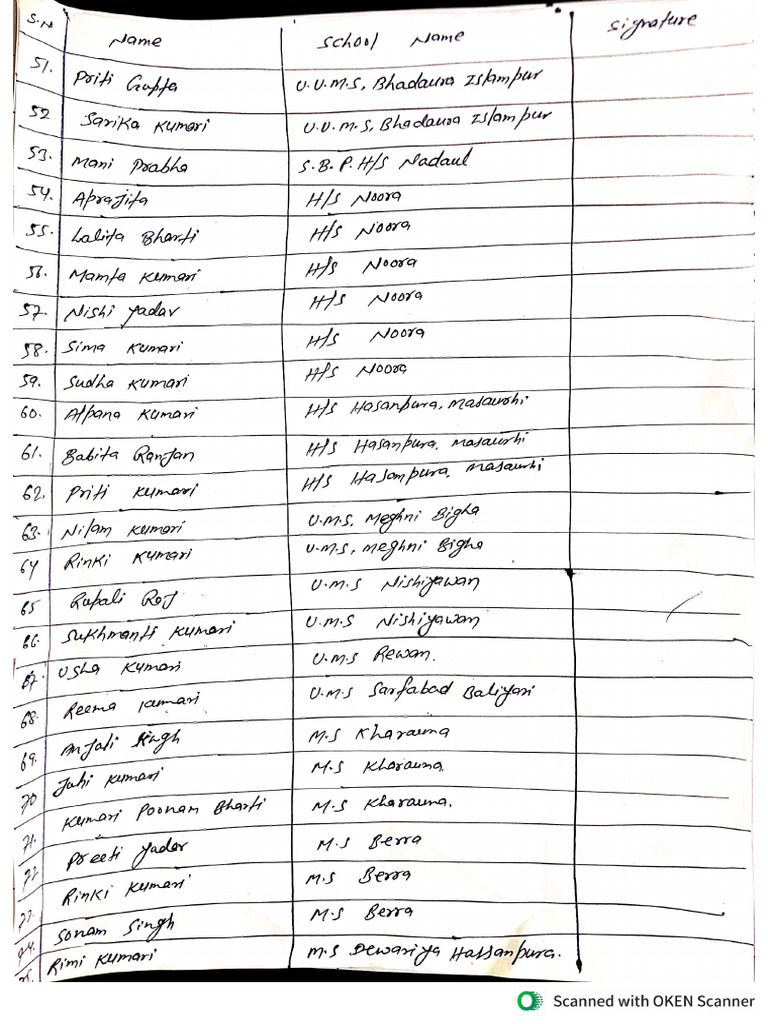 S.N Name School Name Signature
51. Priti Gupta U.U.M.S, Bhadaura Islampur
52 Sarika Kumari U.U.M.S, Bhadaura Islampur
53. Mani Prabha S.B.P. H/S Nadaul
54. Aprajita H/S Noora
55. Lalita Bharti H/S Noora
56. Mamta Kumari H/S Noora
57. Nishi Yadav H/S Noora
58. Sima Kumari H/S Noora
59. Sudha Kumari H/S Noora
60. Alpana Kumari H/S Hasanpura, Masaurhi
61. Babita Ranjan H/S Hasanpura, Masaurhi
62. Priti Kumari H/S Hasanpura, Masaurhi
63. Nilam Kumari U.M.S, Meghni Bigha
64 Rinki Kumari U.M.S, Meghni Bigha
65 Rupali Raj U.M.S Nishiyawan
66. Sukhmanti Kumari U.M.S Nishiyawan
67. Usha Kumari U.M.S Rewan.
68. Reema Kumari U.M.S Sarfabad Baliyari
69. Anjali Singh M.S Kharauna
70 Juhi Kumari M.S Kharauna
71. Kumari Poonam Bharti M.S Kharauna.
72 Preeti Yadav M.S Berra
73. Rinki Kumari M.S Berra
74. Sonam Singh M.S Berra
75. Rimi Kumari M.S Dewariya Hassanpura.
Scanned with OKEN Scanner